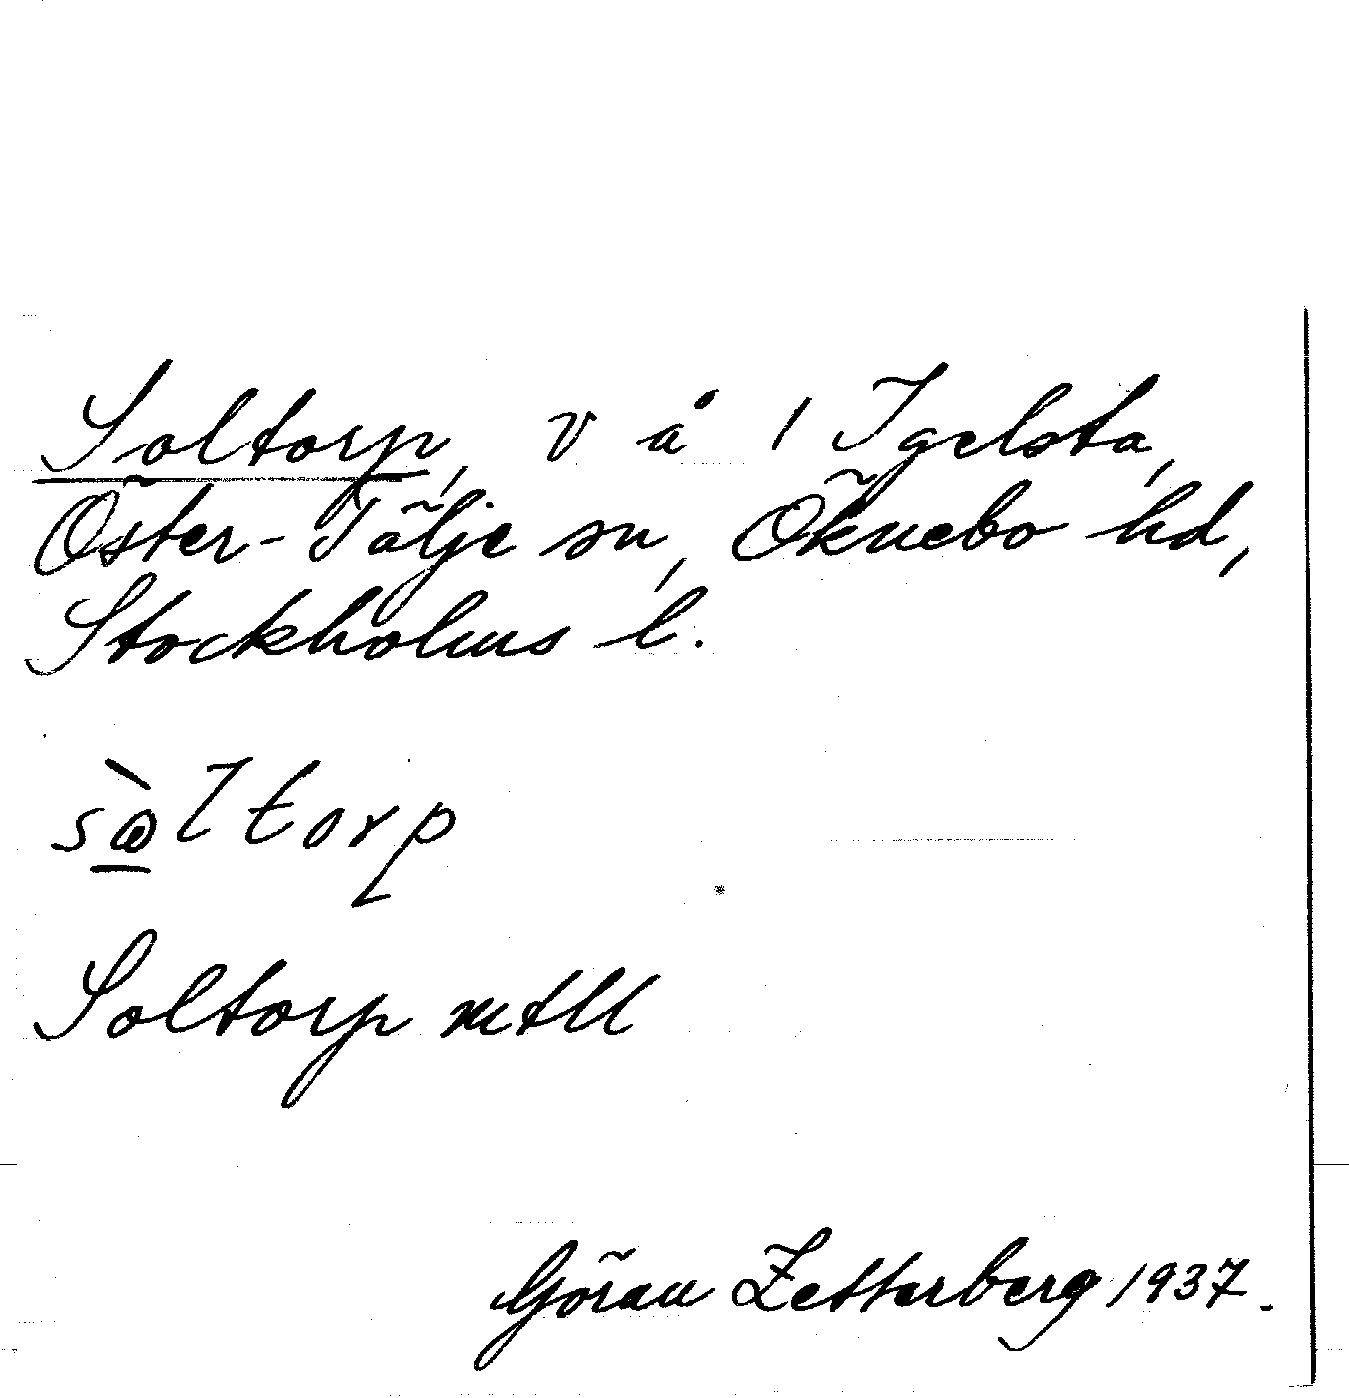 Soltorp, v å 1 Igelsta,
Öster-Tälje sn, Öknebo hd,
Stockholms l.
sòltorp
Soltorp mtll
Göran Zetterberg 1937.